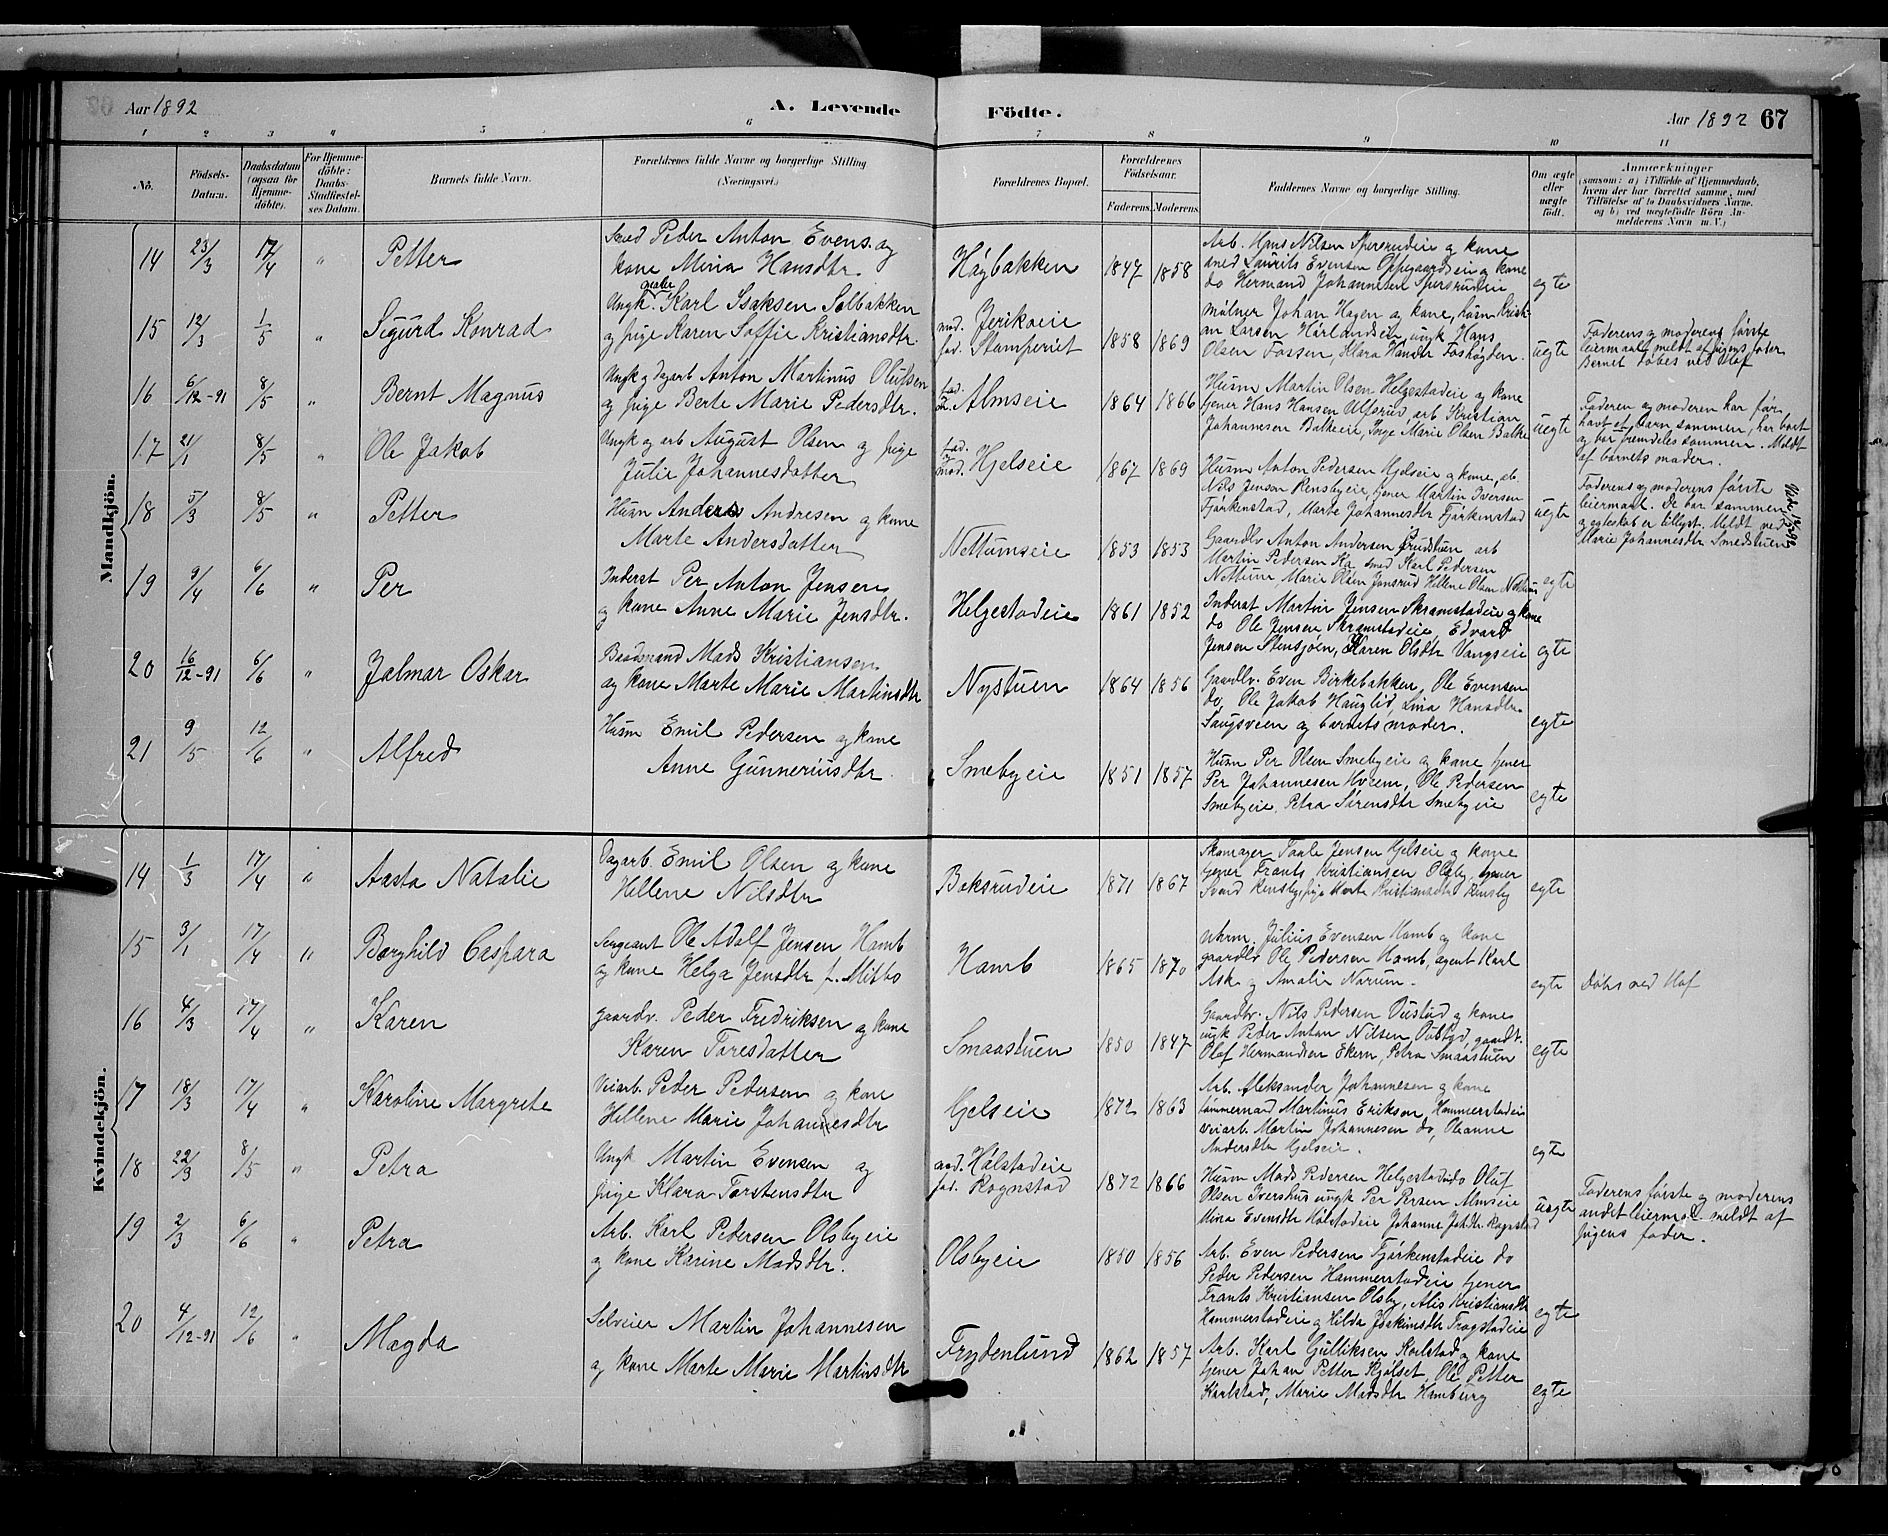 Aar 1892
A. Levende
Födte.
Aar 1892 67
1 2 3 4 5 6 7 8 9 10 11
No.
Födsels-Datum.
Daabsdatum (ogsaa for Hjemmedöbte).
For Hjemmedöbte: Daabs-Stadfæstelses Datum.
Barnets fulde Navn.
Forældrenes fulde Navne og borgerlige Stilling (Næringsvei.)
Forældrenes Bopæl.
Forældrenes Födselsaar.
Faderens. Moderens.
Faddernes Navne og borgerlige Stilling.
Om ægte eller uægte födt.
Anmærkninger
(saasom: a) i Tilfælde af Hjemmedaab, hvem der har forrettet samme, med Tilföielse af to Daabsvidners Navne. og b) ved uægtefödte Börn Anmelderens Navn m. V.)
Mandkjön.
14 23/3 17/4 " Petter
Smed Peder Anton Evens. og
kone Mina Hansdtr.
Høgbakken 1847 1858
Arb. Hans Nilsen Spersrudeie og kone
smed Laurits Evensen Oppegaardseie og kone
do Hermand Johannesen Spersrudeie
egte
15 12/3 1/5 " Sigurd Konrad
Ungk. Karl Isaksen Solbakken
og pige Karen Soffie Kristiansdtr.
mod. Jerikoeie
fad. Stamperiet
1858 1869
Mølner Johan Hagen og kone, husm Kristi-
an Larsen Hørlandseie, ungk Hans
Olsen Fossen, Klara Hansdtr Foshøgden.
uegte
Faderens og moderens første
leiermaal, meldt af pigens fader
Bernet Tobes ved Hof
16 6/12-91 8/5 " Bernt Magnus
Ungk og dagarb Anton Martinus Olufsen
og pige Berte Marie Pedersdtr.
Almseie 1864 1866
Husm Martin Olsen Helgestadeie og kone
tjener Hans Hansen Ulfsrud, arb Kristian
Johannesen Balkeeie, pige Marie Olsen Balke
uegte
Faderen og moderen har før
havt et barn sammen, har bort
og bor fremdeles sammen. Meldt
af barnets moder.
17 21/1 8/5 " Ole Jakob
Ungk og arb August Olsen og pige
Julie Johannesdatter
fad. og mod. Hjelseie
1867 1869
Husm Anton Pedersen Hjelseie og kone, do
Nils Jenson Rensbyeie, tjener Martin Iversen
Fjørkenstad, Marte Johannesdtr Fjørkenstad
uegte
Faderens og moderens første
leiermaal. De bor sammen
og egteskab er tillyst. Meldt ved
Marie Johannesdtr Smedstuen
18 5/3 8/5 " Petter
Husm Anders Andresen og kone
Marte Andersdatter
Nettumseie 1853 1853
Gaardbr Anton Andersen Grudstuen arb
Martin Pedersen Ka smed Karl Pedersen
Nettum Marie Olsen Jonsrud Hellene Olsen Nettum
egte
19 9/4 6/6 " Per
Inderst Per Anton Jensen
og kone Anne Marie Jensdtr.
Helgestadeie 1861 1852
Inderst Martin Jensen Skramstadeie og kone
do Ole Jensen Skramstadeie, Edvard
Jensen Stensjøen, Karen Olsdtr Vangseie
egte
20 16/12-91 6/6 " Jalmar Oskar
Baadsmand Mads Kristiansen
og kone Marte Marie Martinsdtr
Nystuen 1864 1856
Gaardbr. Even Birkebakken, Ole Evensen
do, Ole Jakob Hauglid, Lina Hansdtr.
Saugsveen og barnets moder.
egte
21 9/5 12/6 " Alfred
Husm Emil Pedersen og kone
Anne Gunneriusdtr.
Smebyeie 1851 1857
Husm Per Olsen Smebyeie og kone tjener
Per Johannesen Hveem, Ole Pedersen
Smebyeie, Petra Sørensdtr Smebyeie
egte
Kvindekjön.
14 1/3 17/4 " Aasta Natalie
Dagarb. Emil Olsen og kone
Hellene Nilsdtr
Baksrudeie 1871 1867
Skomager Paale Jensen Gjelseie og kone
tjener Frants Kristiansen Olsby, tjener
Svend Rensby, pige Marte Kristiansdtr Rensby
egte
15 3/1 17/4 " Borghild Caspara
Sergeant Ole Adolf Jensen Hamb
og kone Helga Jensdtr f. Mitbo
Hamb 1865 1870
Ukrm. Julius Evensen Hamb og kone
gaardbr Ole Pedersen Hamb, agent Karl
Ask og Amalie Narum.
egte
Døbt ved Hof
16 4/3 17/4 " Karen
Gaardbr. Peder Fredriksen og kone
Karen Toresdatter
Smaastuen 1850 1847
Gaardbr. Nils Pedersen Oustad og kone
ungk Peder Anton Nilsen Oustad, gaardbr.
Olaf Hermandsen Ekern, Petra Smaastuen
egte
17 18/3 17/4 " Karoline Margrete
Veiarb. Peder Pedersen og kone
Hellene Marie Johannesdtr
Gjelseie 1872 1863
Arb. Aleksander Johannesen og kone
tømmermand Martinus Erikson, Hammerstadeie
Veiarb. Martin Johannesen do, Oleanne
Andersdtr Gjelseie.
egte
18 22/3 8/5 " Petra
Ungk Martin Evensen og
pige Klara Torstensdtr
mod. Hølstadeie
fad. Rognstad
1872 1866
Husm Mads Pedersen Helgestad do Oluf
Olsen Ivershus ungk Per Persen Almseie
Mina Evensdtr Hølstadeie Johanne Johdtr Rognstad
uegte
Faderens første og moderens
andet leiermaal meldt af
pigens fader.
19 2/3 6/6 " Petra
Arb. Karl Pedersen Olsbyeie
og kone Karine Madsdtr.
Olsbyeie 1850 1856
Arb. Even Pedersen Fjørkenstadeie do
Peder Pedersen Hammerstadeie tjener
Frants Kristiansen Olsby, Alis Kristiansdtr
Hammerstadeie og Hilda Joakimsdtr Frogstadeie
egte
20 4/12-91 12/6 " Magda
Selveier Martin Johannesen
og kone Marte Marie Martinsdtr
Frydenlund 1862 1857
Arb. Karl Gulliksen Karlstad og kone
tjener Johan Petter Kjølset, Ole Petter
Karlstad, Marie Madsdtr Hamburg
egte